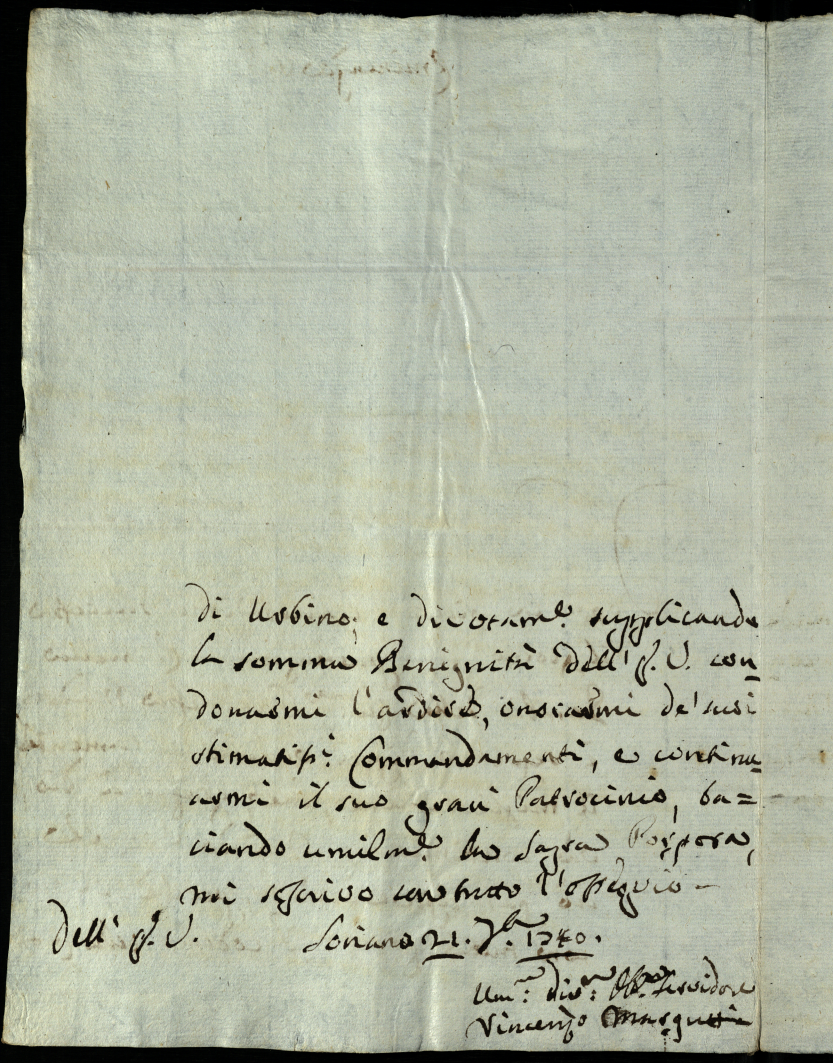 di Urbino; e divotam.e supplicando
la somma Benignità dell' E. V. con=
donarmi l'ardire, onorarmi de' suoi
stimatiss.i Commandamenti, e continu=
armi il suo gran Patrocinio, ba=
ciando umilm.e la Sagra Porpora,
mi scrivo con tutto l'ossequio -
Dell' E. V. Soriano 21. 7b. 1740.
Um.o div.o Obb.o Servidore
Vincenzo